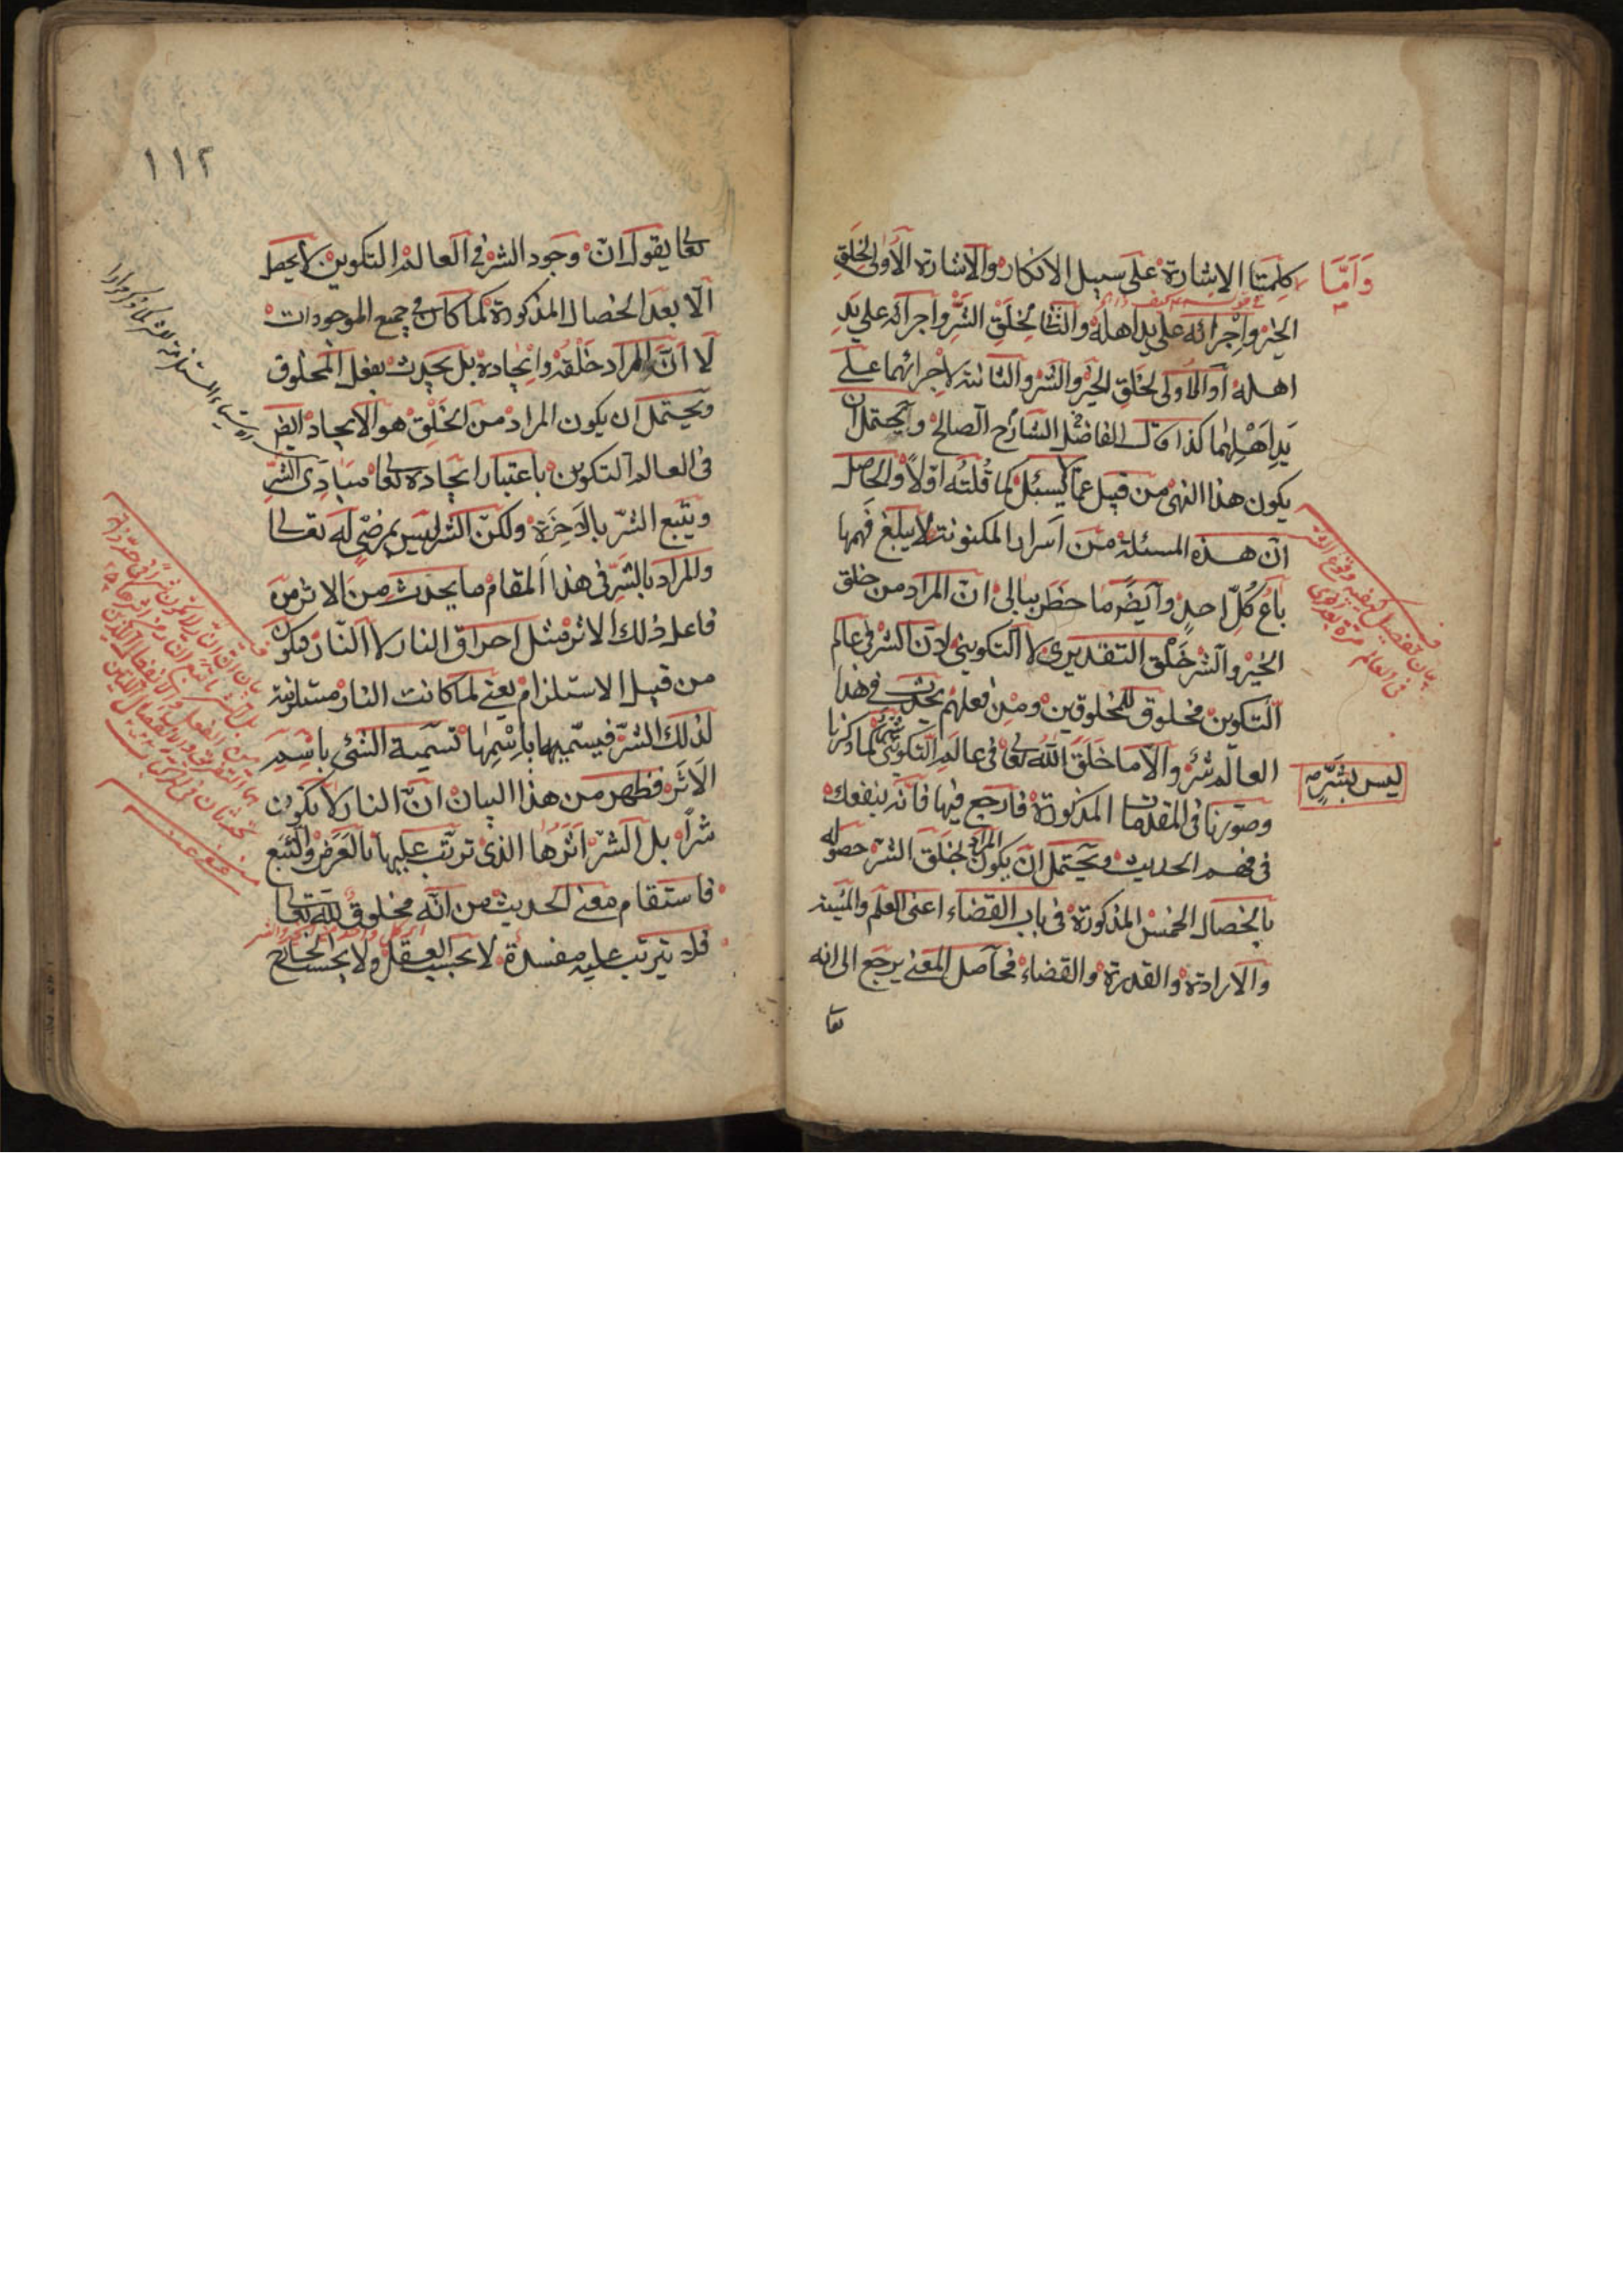 وَاَمَّا كلمتا الاشارة على سبيل الانكار والاشارة الأولى لخلق
الخير واجرائه على يد اهله والثانية لخلق الشر واجرائه على يد
اهله أو الأولى لخلق الخير والشر والثانية لاجرائهما على
يد اهلهما كذا قال الفاضل الشارح الصالح ويحتمل ان
يكون هذا النهى من قبيل عما يسئل كما قلته اولاً والحاصل
ان هذه المسئلة من اسرار المكنونة لا يبلغ فهمها
باع كل احد وايضا ما خطر ببالى ان المراد من خلق
الخير والشر خلق التقديرى لا التكوينى لان الشر فى عالم
التكوين مخلوق للمخلوقين ومن فعلهم يحدث فى هذا
العالم شر والا ما خلق الله تعا فى عالم التكوين شرا كما ذكرنا
ليس بشر
وصورنا فى المقدمات المذكورة فارجع فيها فانه ينفعك
فى فهم الحديث ويحتمل ان يكون المراد بخلق الشر حصوله
بالخصال الخمس المذكورة فى باب القضاء اعنى العلم والمشية
والارادة والقدرة والقضاء فحاصل المعنى يرجع الى انه
تعا
بيان تفصيل كيفية وقوع الشر
فى العالم مرة بعد اخرى
١١٢
تعا يقول ان وجود الشر فى العالم التكوين لا يحصل
الا بعد الخصال المذكورة كما كان فى جميع الموجودات
لا ان المراد خلقه وايجاده بل يحدث بفعل المخلوق
ويحتمل ان يكون المراد من الخلق هو الايجاد ايضا
فى العالم التكوين باعتبار ايجاده تعا مبادى الشر
ويتبع الشر بالاخرة ولكن الشر ليس بمرضى له تعالى
والمراد بالشر فى هذا المقام ما يحدث من الاثر من
فاعل ذلك الاثر مثل احراق النار لا النار فيكون
من قبيل الاستلزام يعنى لما كانت النار مستلزمة
لذلك الشر فيسميها باسمها تسمية الشئ باسم
الاثر فظهر من هذا البيان ان النار لا يكون
شراً بل الشر اثرها الذى ترتب عليها بالعرض والتبع
فاستقام معنى الحديث من انه مخلوق لله تعالى
فلا يترتب عليه مفسدة لا بحسب العقل ولا بحسب الخارج